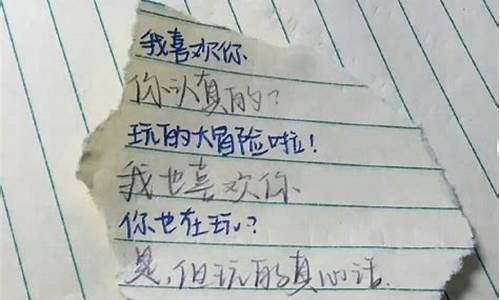 我喜欢你
你认真的?
玩的大冒险啦!
我也喜欢你
你也在玩?
是,但玩的真心话.